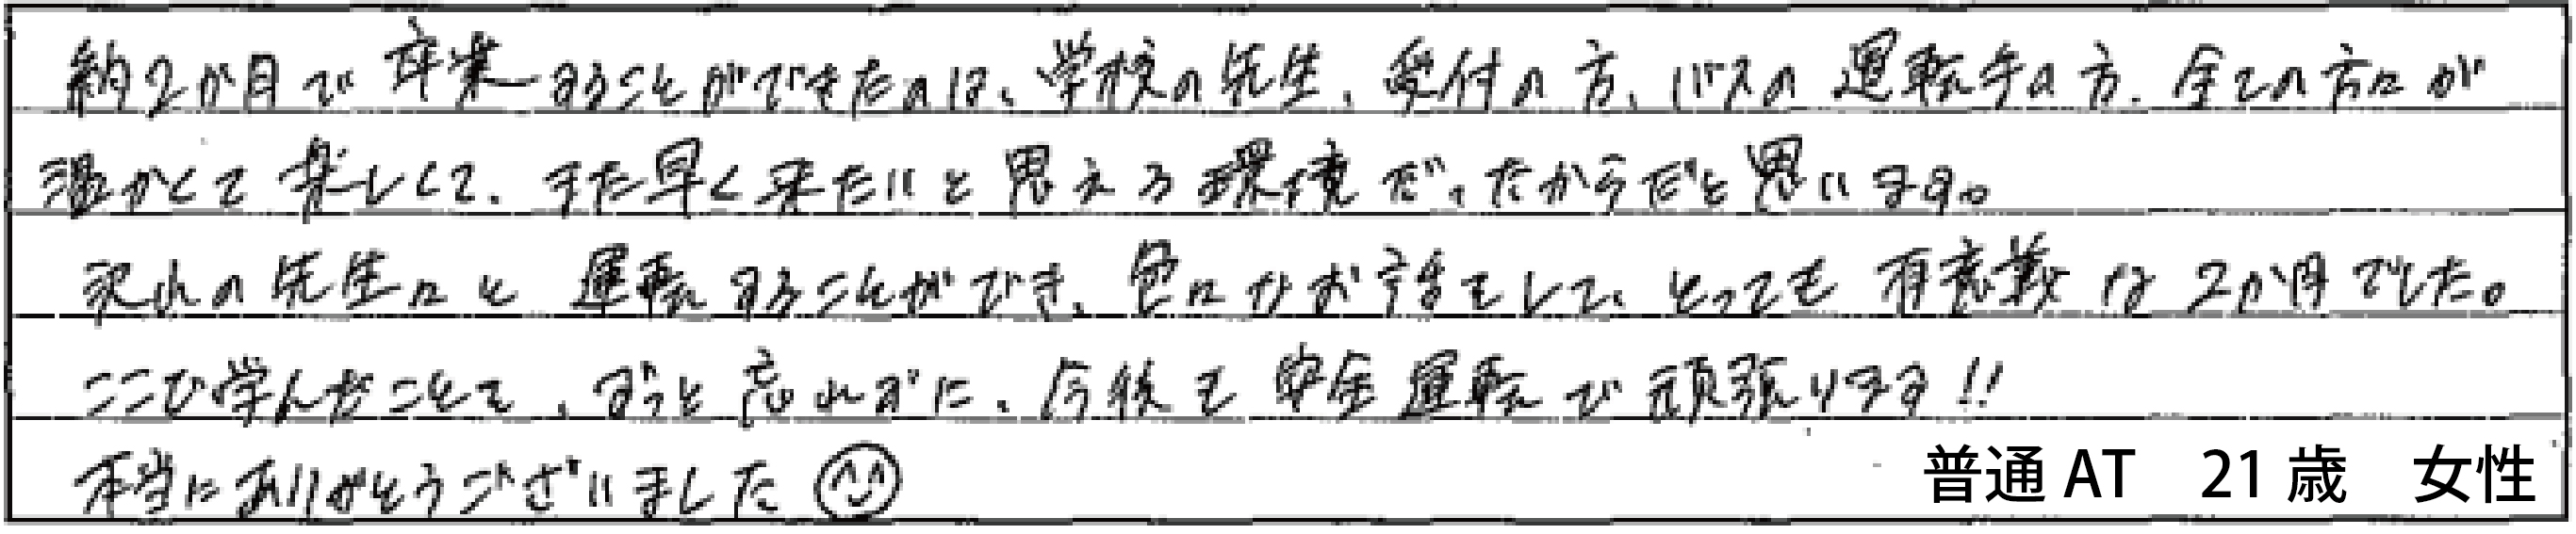 約2か月で卒業することができたのは、学校の先生、受付の方、バスの運転手の方、全ての方々が
温かくて楽しくて、また早く来たいと思える環境だったからだと思います。
沢山の先生々と運転することができ、色々なお話をして、とっても有意義な2か月でした。
ここで学んだことを、ずっと忘れずに、今後も安全運転で頑張ります!!
本当にありがとうございました
普通AT 21歳 女性